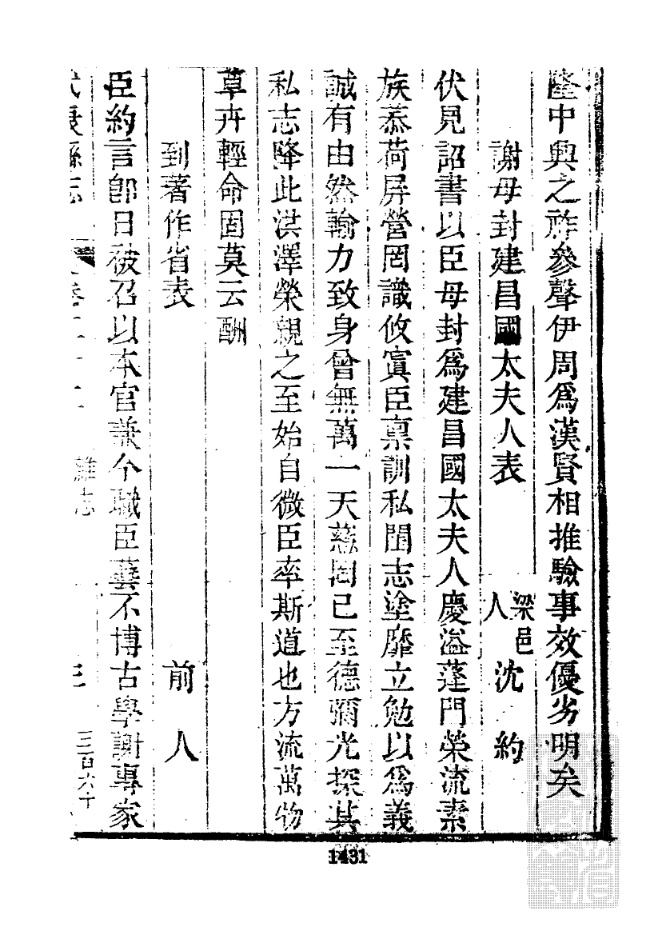 隆中興之祚參聲伊周爲漢賢相推驗事效優劣明矣
謝母封建昌國太夫人表 梁邑人沈約
伏見詔書以臣母封爲建昌國太夫人慶溢蓬門榮流素
族忝荷屏營罔識攸寘臣稟訓私閨志塗靡立勉以爲義
誠有由然輸力致身曾無萬一天慈罔已至德彌光探其
私志降此洪澤榮親之至始自微臣率斯道也方流萬物
草卉輕命固莫云酬
到著作省表 前人
臣約言卽日被召以本官兼今職臣藝不博古學謝專家
武康縣志 卷二十二 雜志 三 三百六十
1431